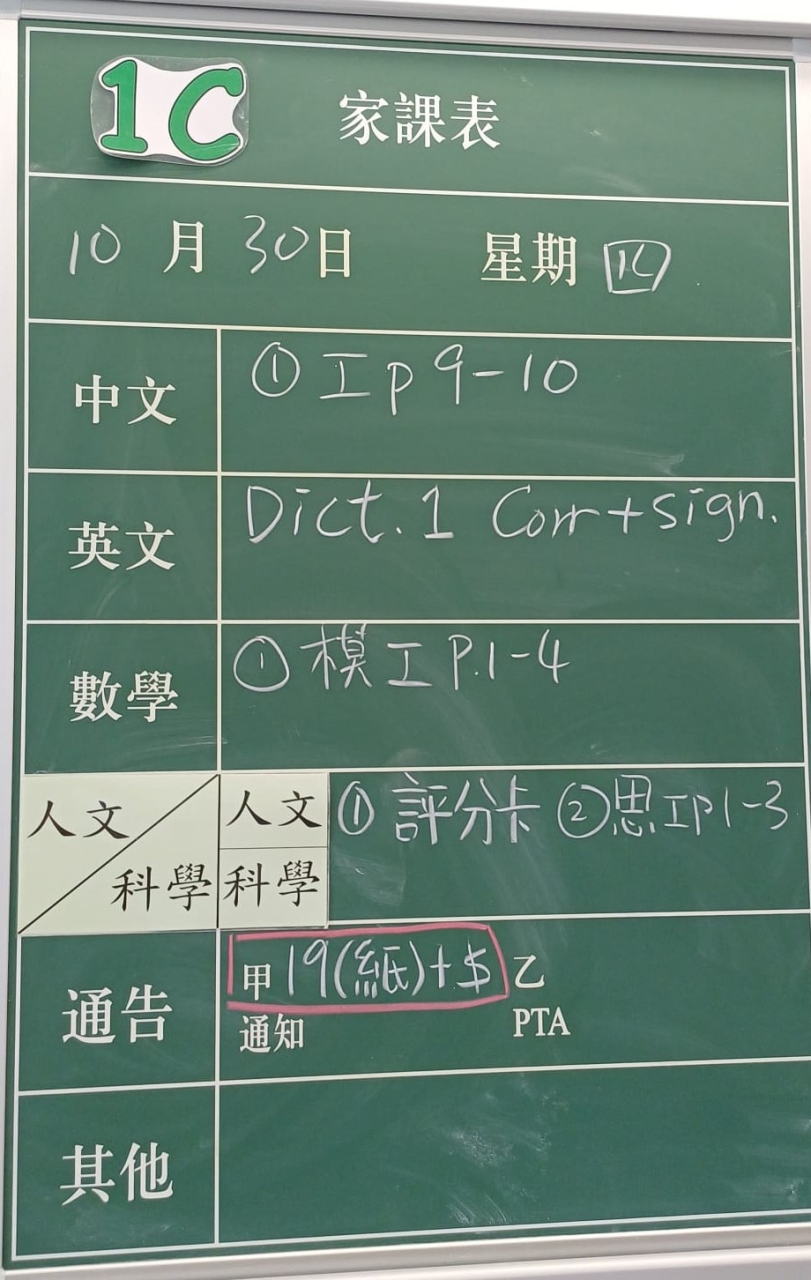 1C 家課表
10 月 30 日 星期 四
中文 ① 工 p 9-10
英文 Dict. 1 Corr + sign.
數學 ① 模工 P.1-4
人文 人文 ① 評分卡 ② 思工 P1-3
科學 科學
通告 甲 19(紙)+$ 乙
通知 PTA
其他